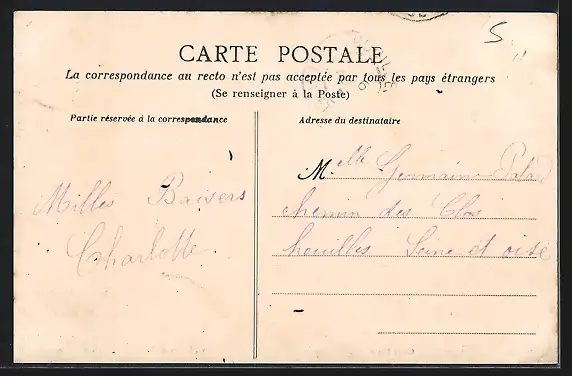 5
CARTE POSTALE
La correspondance au recto n'est pas acceptée par tous les pays étrangers
(Se renseigner à la Poste)
Partie réservée à la correspondance
Adresse du destinataire
Mlle Germaine
chemin des Clos
houilles Seine et oise
Milles Baisers
Charlotte.